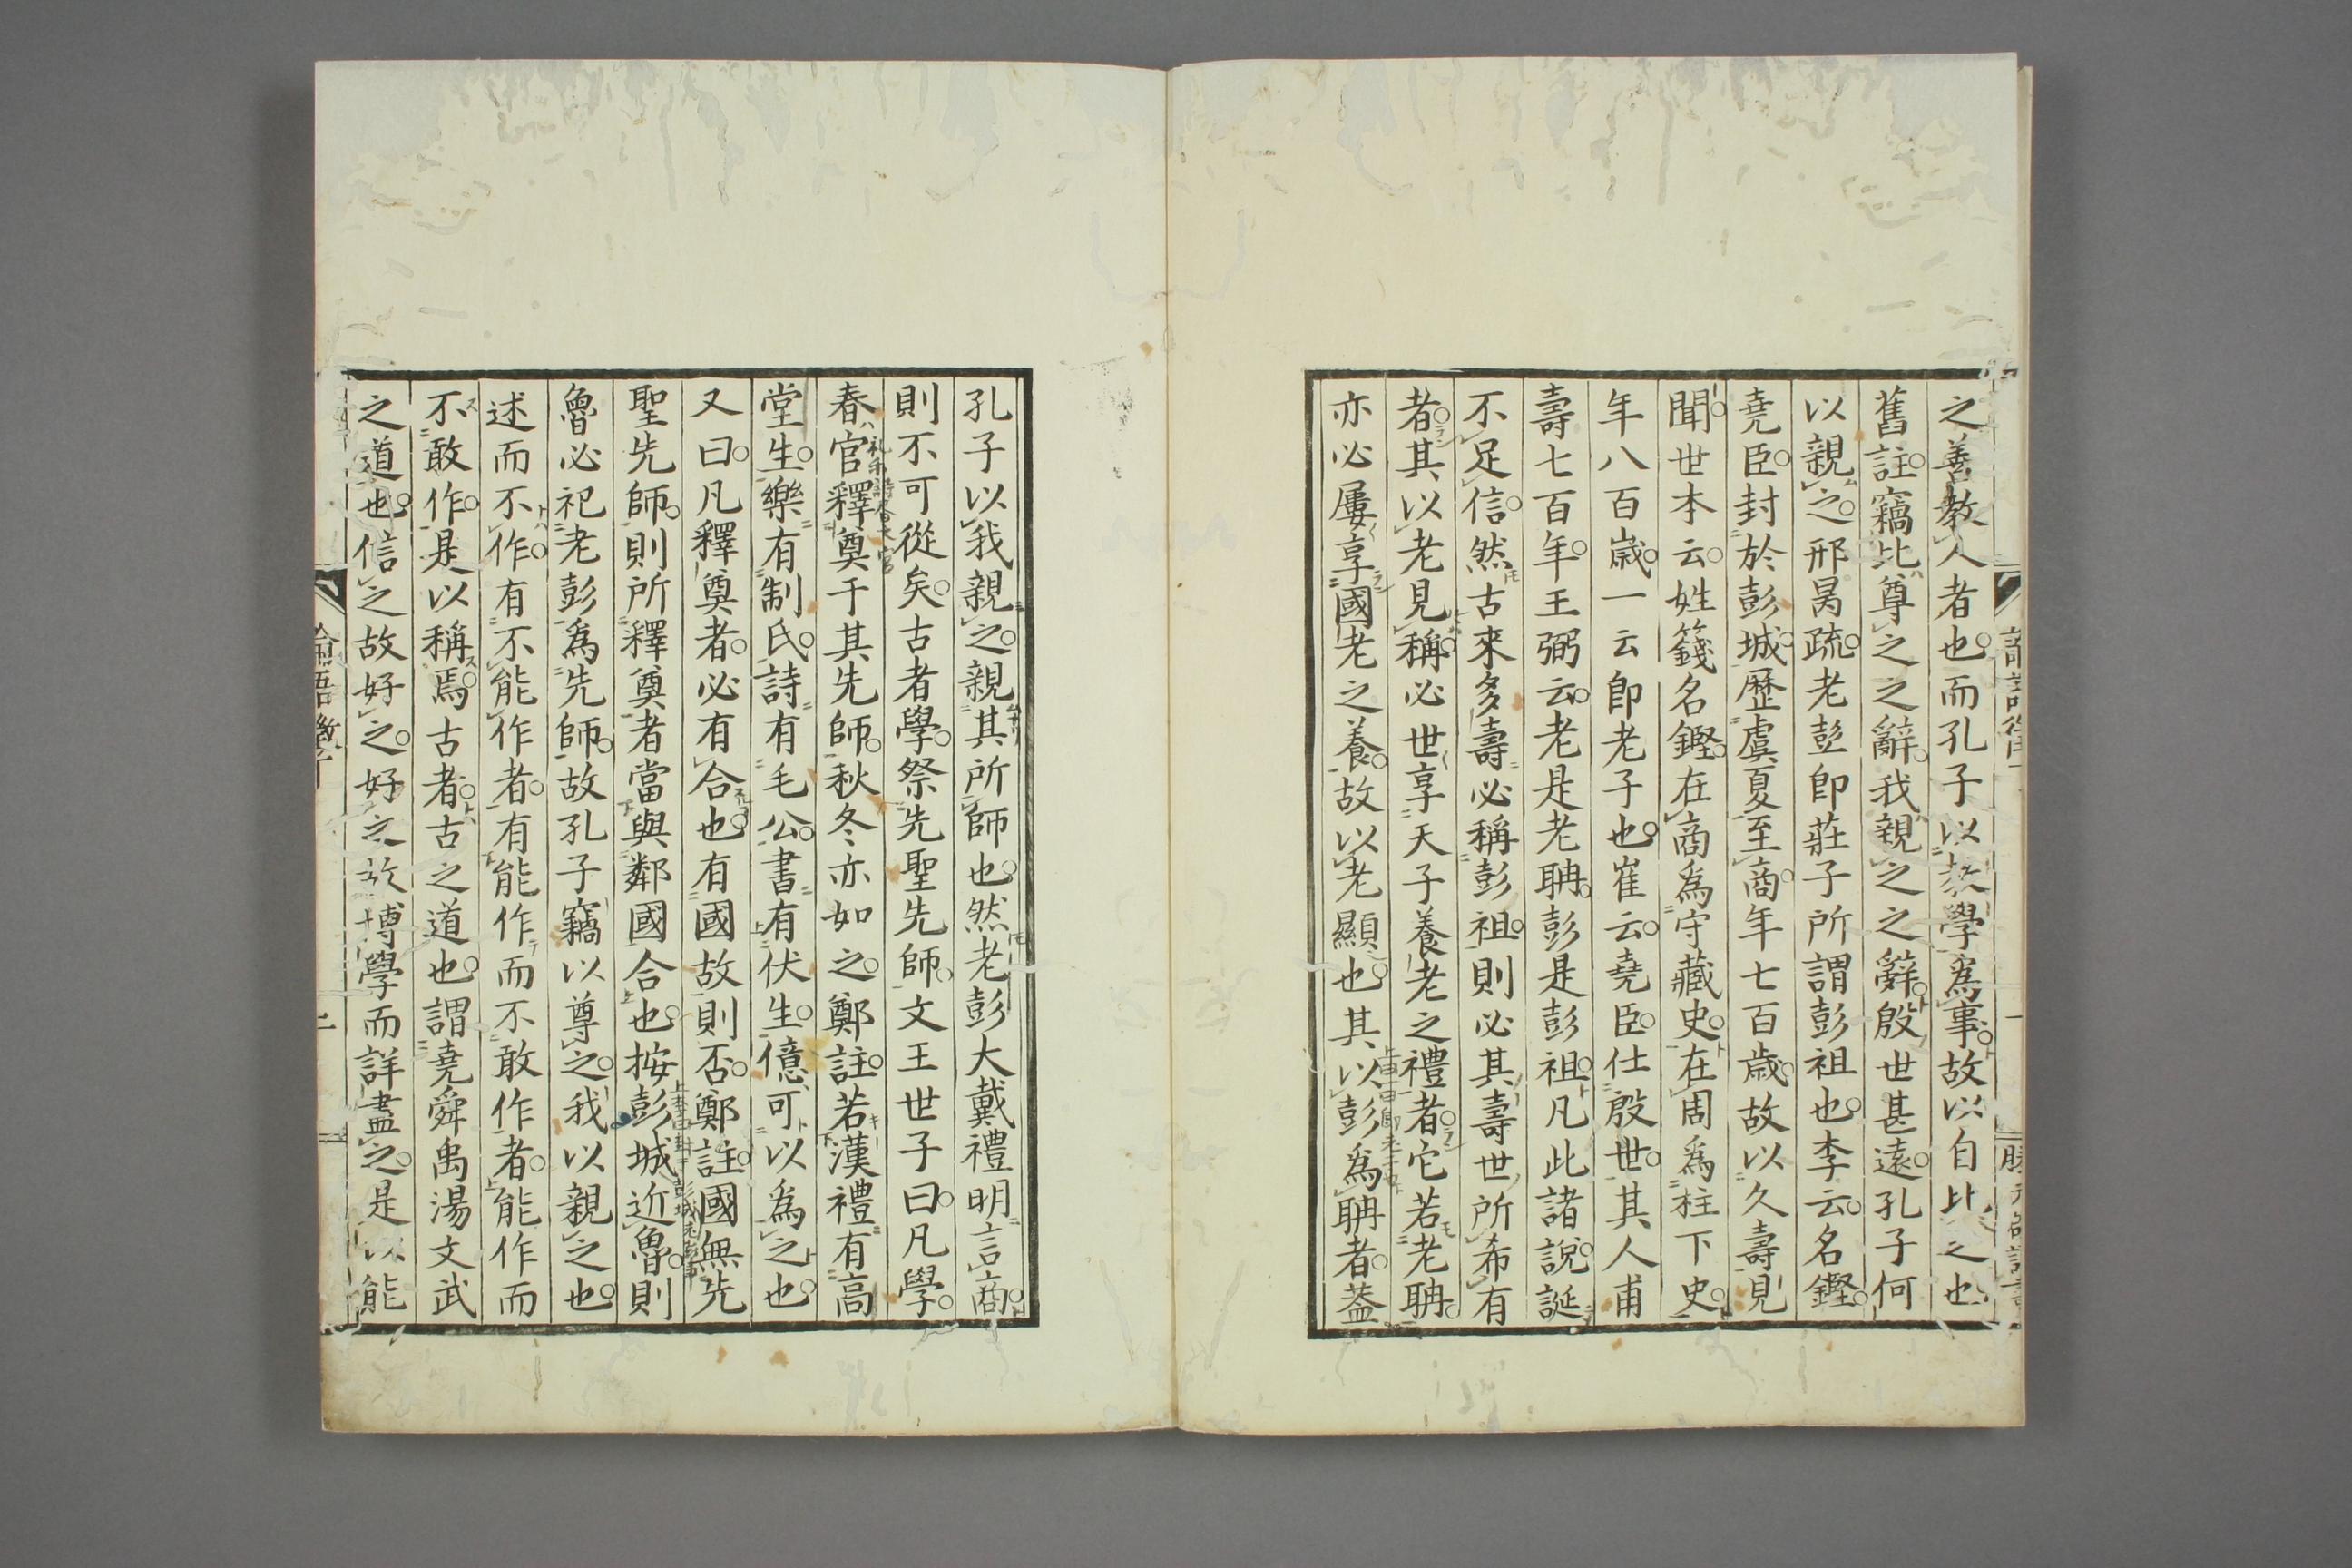 之善教人者也而孔子以教學爲事故以自比之也
舊註竊比尊之之辭我親之之辭殷世甚遠孔子何
以親之邢昺疏老彭卽莊子所謂彭祖也李云名鏗
堯臣封於彭城歷虞夏至商年七百歲故以久壽見
聞世本云姓籛名鏗在商爲守藏史在周爲柱下史
年八百歲一云卽老子也崔云堯臣仕殷世其人甫
壽七百年王弼云老是老聃彭是彭祖凡此諸說誕
不足信然古來多壽必稱彭祖則必其壽世所希有
者其以老見稱必世享天子養老之禮者它若老聃
亦必屢享國老之養故以老顯也其以彭爲聃者蓋
孔子以我親之親其所師也然老彭大戴禮明言商
則不可從矣古者學祭先聖先師文王世子曰凡學
春官釋奠于其先師秋冬亦如之鄭註若漢禮有高
堂生樂有制氏詩有毛公書有伏生億可以爲之也
又曰凡釋奠者必有合也有國故則否鄭註國無先
聖先師則所釋奠者當與鄰國合也按彭城近魯則
魯必祀老彭爲先師故孔子竊以尊之我以親之也
述而不作有不能作者有能作而不敢作者能作而
不敢作是以稱焉古者古之道也謂堯舜禹湯文武
之道也信之故好之好之故博學而詳盡之是以能